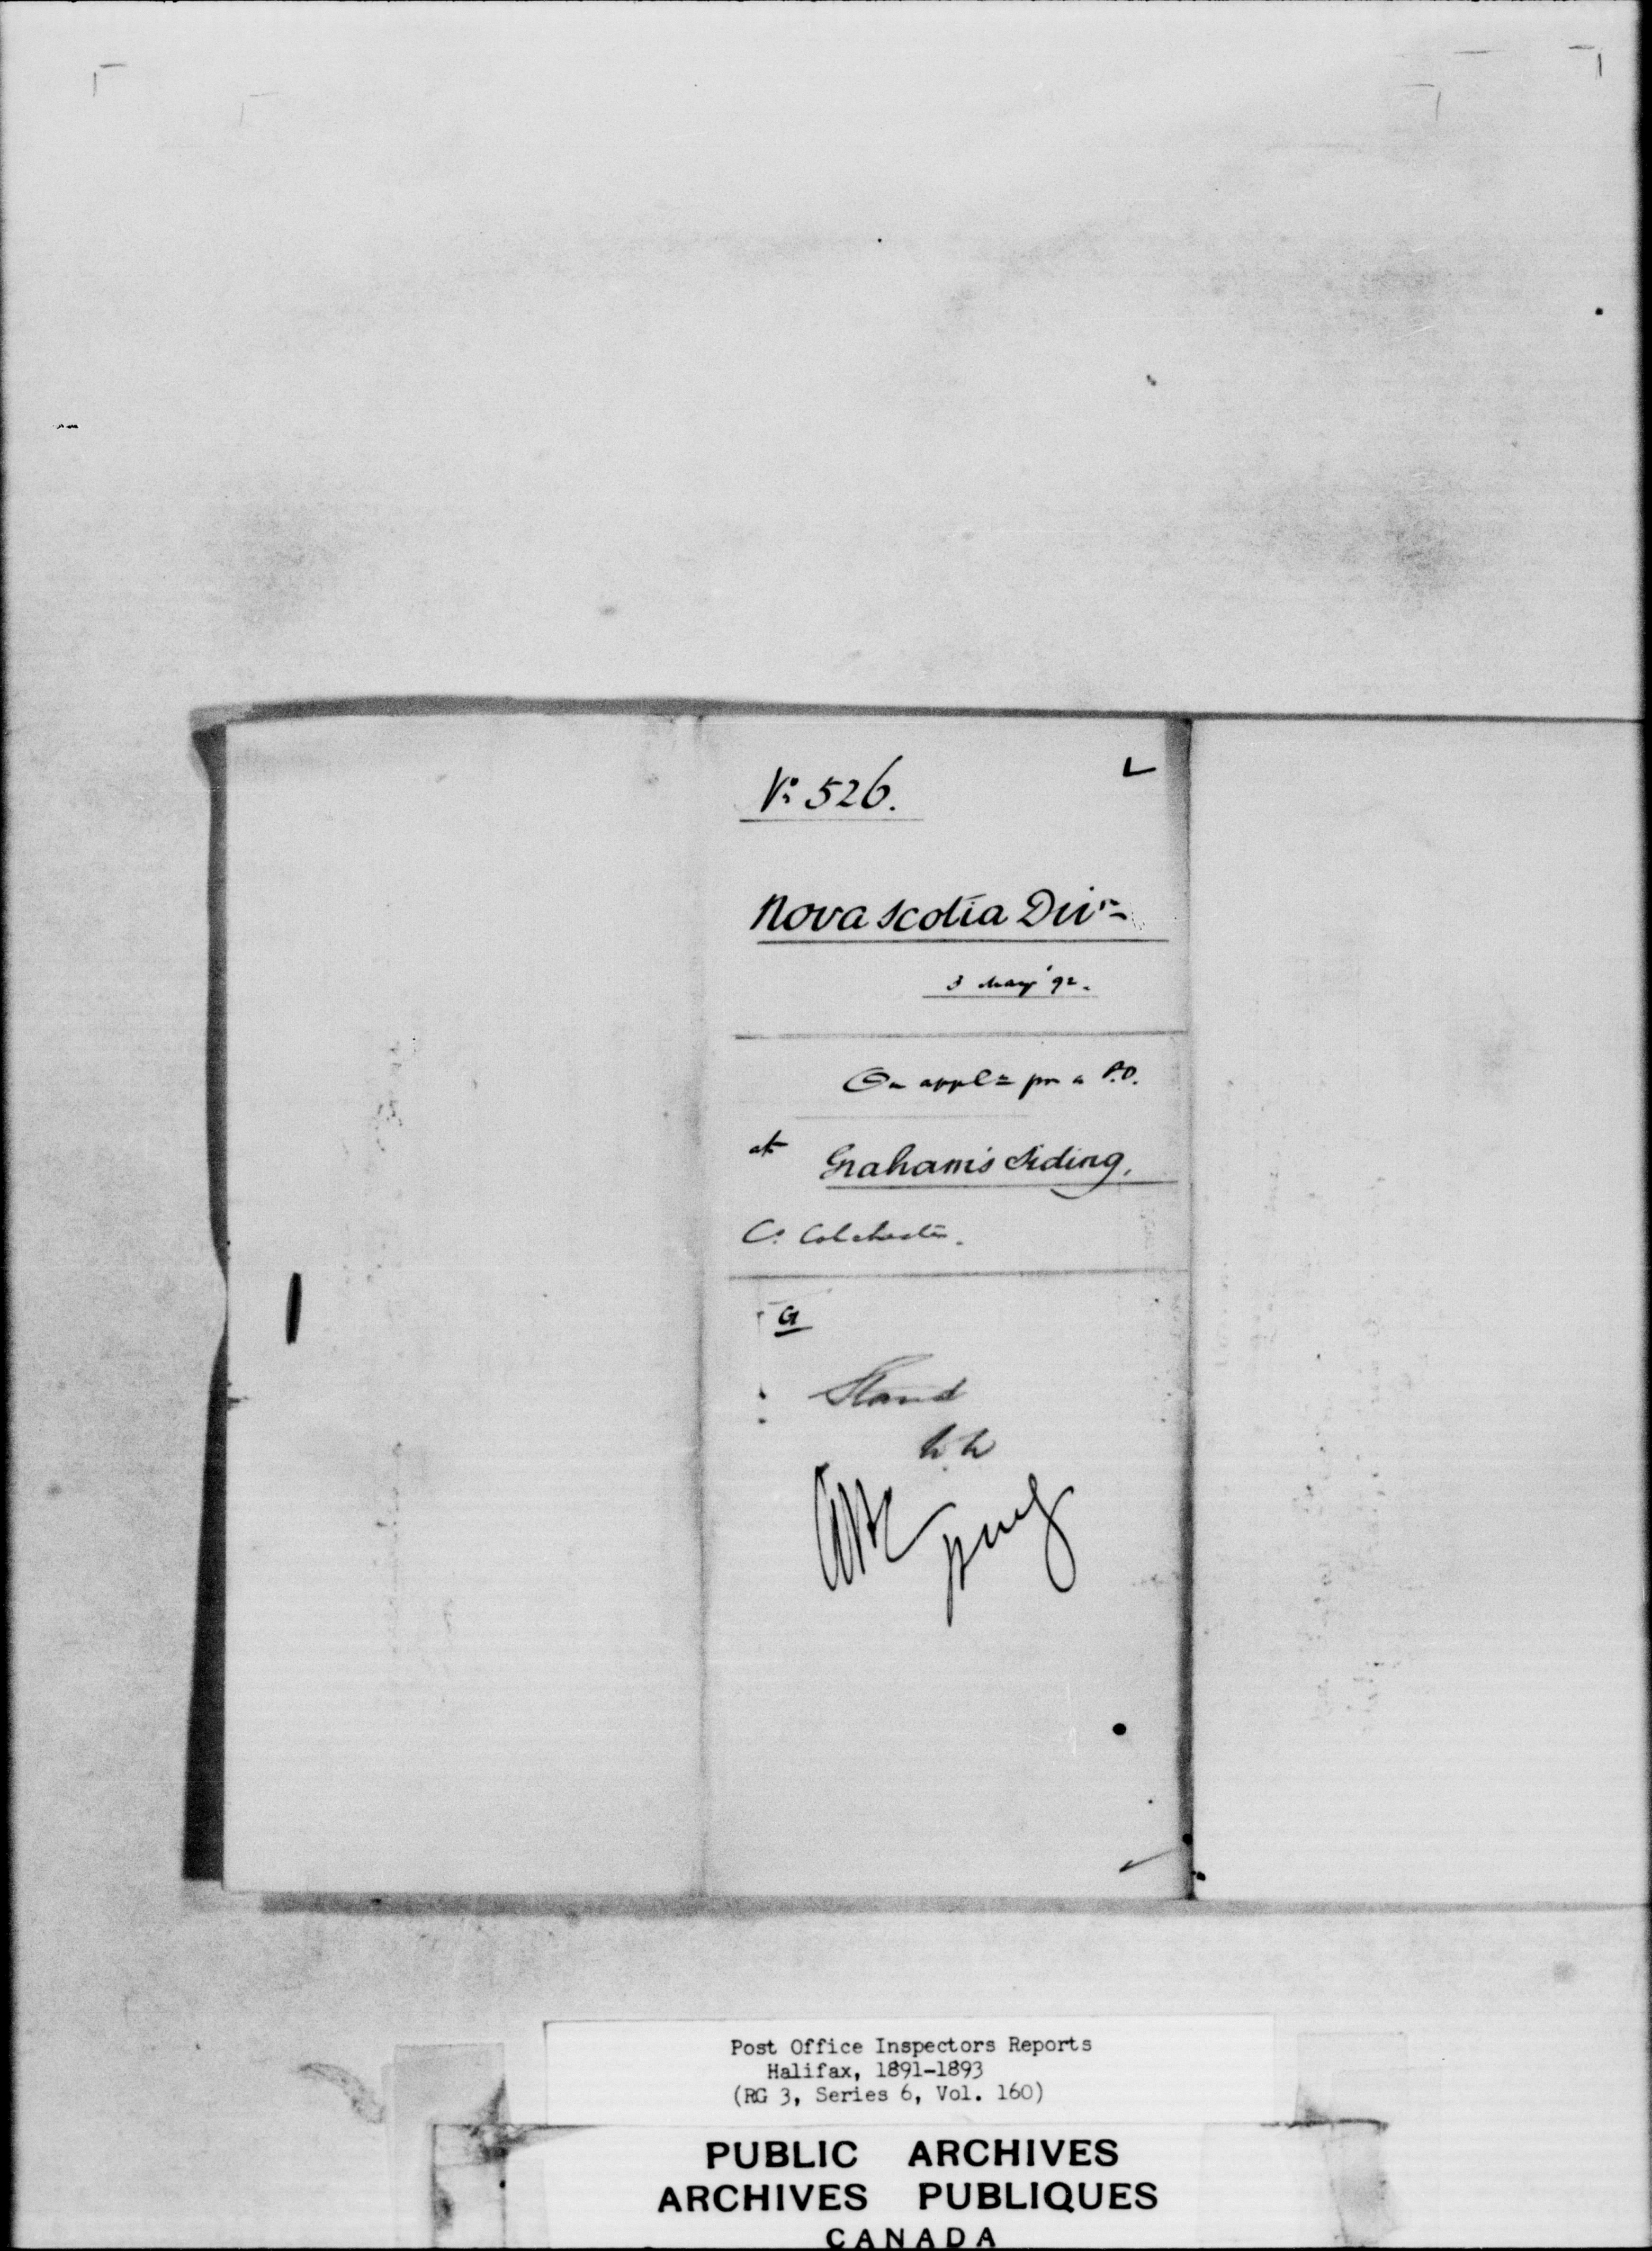 No 526.
Nova Scotia Divn
3 May '92.
On appln for a P.O.
at Graham's Siding,
Co Colchester.
G
Stand
Post Office Inspectors Reports
Halifax, 1891-1893
(RG 3, Series 6, Vol. 160)
PUBLIC ARCHIVES
ARCHIVES PUBLIQUES
CANADA